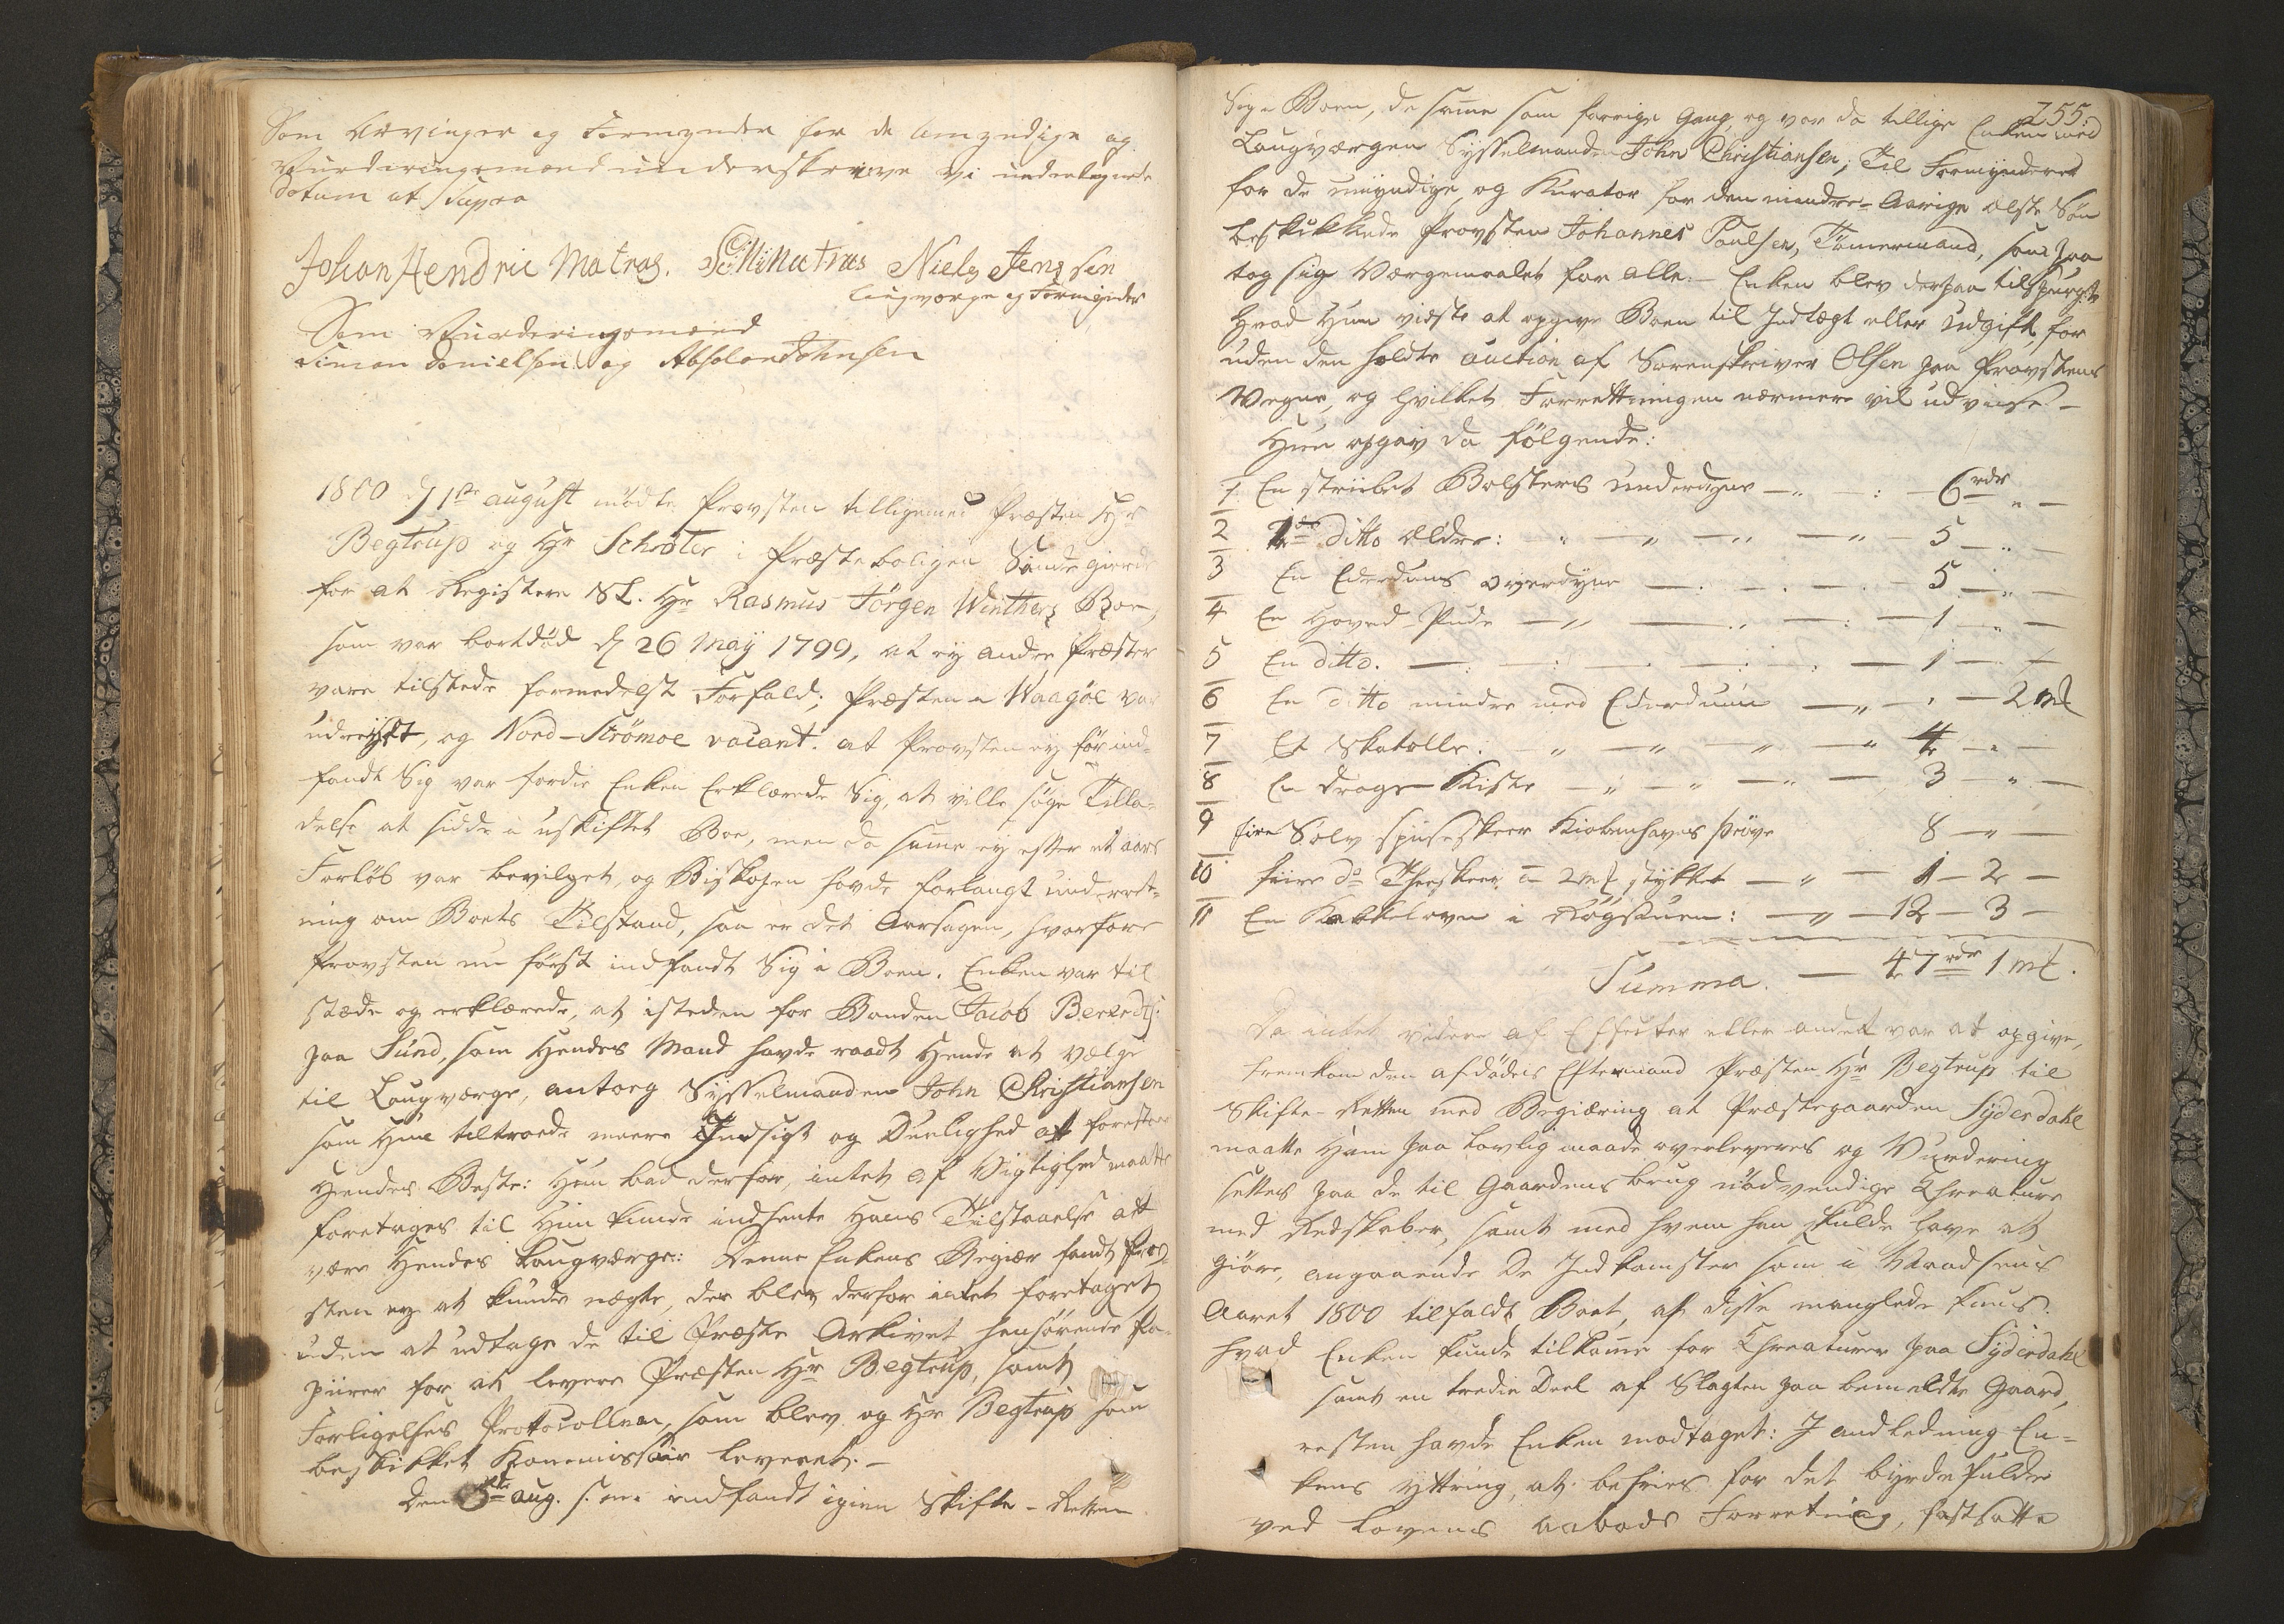 Som Arvinger og Formynder for de Umyndige og
Vurderingsmænd underskrive vi underlegnede
Datum ut Supra
Johan Hendric Matras. Niels Jenssen
laugværge og Formynder
Som Vurderingsmænd
Simon Danielsen og Absolon Johnsen
1800 d 1ste august mødte Provsten tilligemed Præsten Hr
Begtrup og Hr Schrøter i Præsteboligen Sandegierde
for at Registere Sl. Hr Rasmus Jörgen Winthers Boe,
som var bortdød d 26 Maÿ 1799, at ey andre Præster
vare tilstede formedelst Forfald; Præsten a Waagöe var
udreyst, og Nord-Strömoe vacant. at Provsten ey för ind-
fandt Sig var fordie Enken Erklærede Sig, at ville søge Tilla-
delse at sidde i uskiftet Boe, men da samme ey efter et aars
Forløb var bevilget, og Biskopen havde forlangt underret-
ning om Boets Tilstand, saa er det Aarsagen, hvorfore
Provsten nu først indfandt Sig i Boen. Enken var til
stæde og erklærede, at isteden for Bonden Jacob
paa Sund, som Hendes Mand havde raadt Hende at vælge
til Laugværge, antoeg Sysselmanden John Christiansen
som Hun tiltroede meere Indsigt og Duelighed at forestaae
Hendes Beste: Hun bad derfor, intet af Vigtighed maatte
foretages til Hun kunde indhente Hans Tilstaaelse att
være Hendes Laugværge: Denne Enkens Begiær fandt Prov-
sten ey at kunde nægte, der blev derfor intet foretaget
uden at udtage de til Præste Arkivet henhörende Pa-
piirer for at levere Præsten Hr Begtrup, samt
Forligelses Protocollen, som blev og Hr Begtrup som
beskikket Kommissair leveret.-
Den aug. s. a. indfandt igien Skifte-Retten
255.
Sig i Boen, de samme som forrige Gang, og var da tillige Enken med
Laugværgen Sysselmanden John Christiansen; Til Formynderen
for de umyndige, og Kurator for den mindre-Aarige ælste Søn
beskikkede Provsten Johannes Poulsen, Tömermand, som paa
tog sig Værgemaalet for alle. - Enken blev derpaa tilspurgt
Hvad Hun vidste at opgive Boen til Indtægt eller Udgift for
uden den holdte auction af Sorenskriver Olsen paa Provstens
Vegne, og hvilket Forrettningen nærmere vil udviise -
Hun opgav da følgende:
1. En striibet Bolsters underdyne - 6 rdr " -
2 1 do ditto ældre: - 5 - " -
3 En Ederduns overdyne - 5 - " -
4 En Hoved-Pude - 1 - " -
5 En ditto. - 1 - " -
6 En ditto mindre med Ederduun - " - 2 mk
7 Et Skatolle: - 4 - " -
8 En Drage-Kiste - 3 - " -
9 fire Sølv spiseskeer Kiobenhavns Pröve 8 - " -
10 fiire do Theeskeer a 2 mk stykket - 1 - 2 -
11 En Kakkelovn i Rögstuen: - 12 - 3 -
Summa. - 47 rdr 1 mk.
Da intet videre af Effecter eller andet var at opgive,
fremkom den afdødes Eftermand Præsten Hr Begtrup til
Skifte-Retten med Begiæring at Præstegaarden Syderdahl
maatte Ham paa Lovlig maade overleveres og Vurdering
settes paa de til Gaardens brug nødvendige Chreature
med Redskaber, samt med hvem han skulde have at
giøre, angaaende De Indkomster som i
Aaret 1800 tilfaldt Boet, af disse manglede kuns.
hvad Enken kunde tilkomme for Chreaturer paa Syderdahl
samt en tredie Deel af Slagten paa bemeldte Gaard,
resten havde Enken modtaget: J andledning En-
kens yttring, at befries for det byrdefulde
ved Lovens aabods Forretning, fastsatte